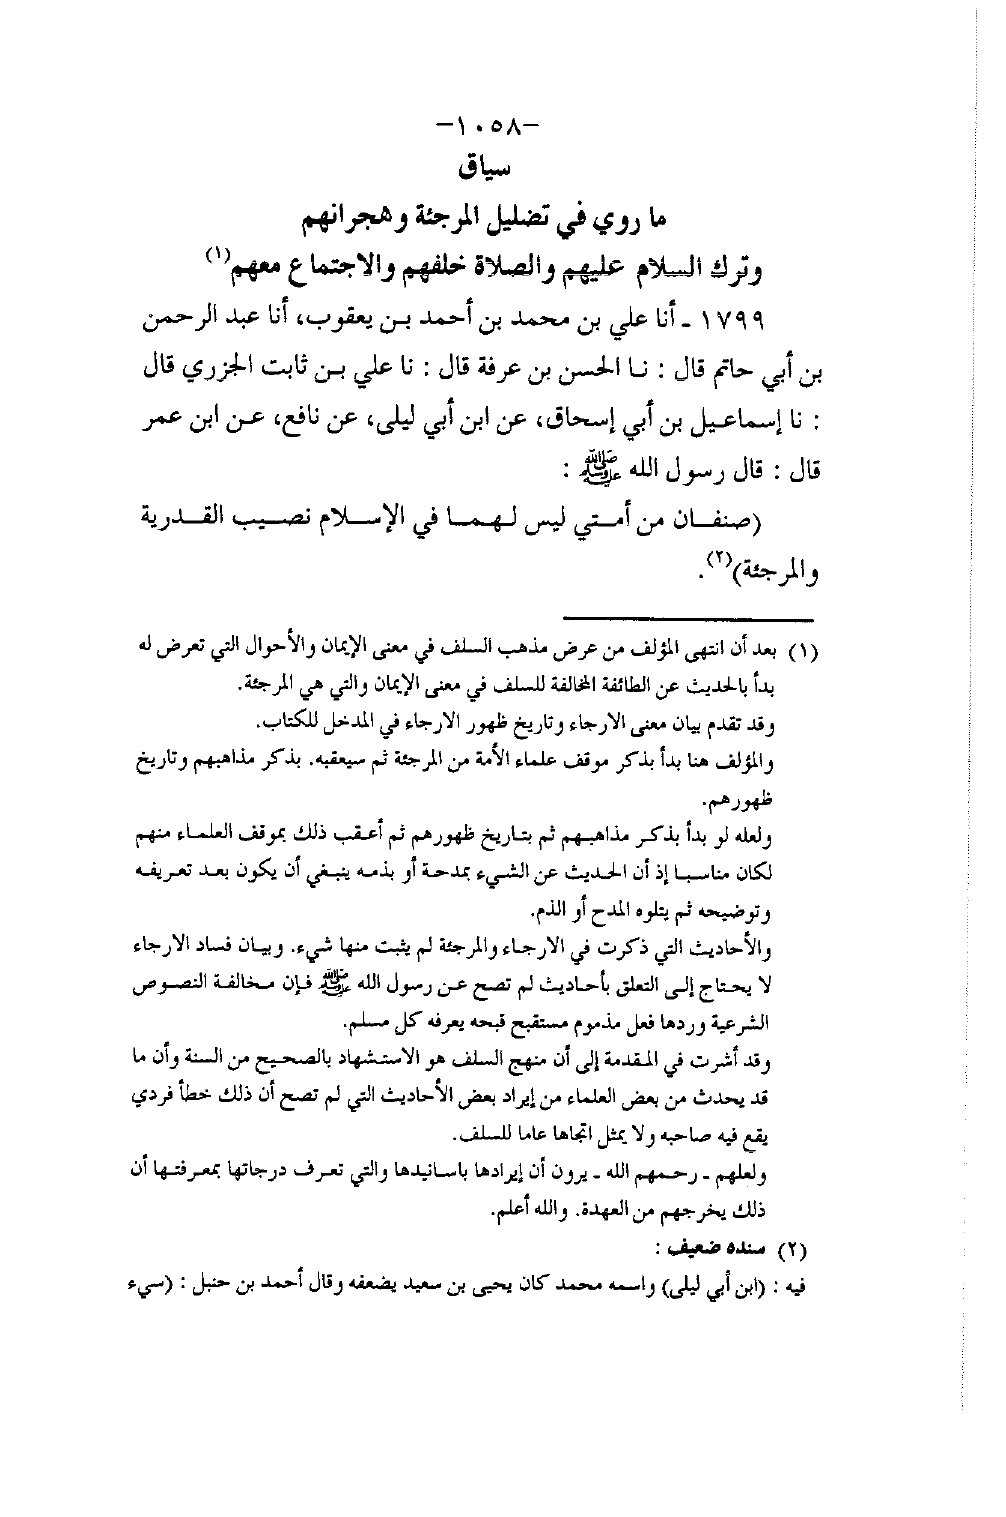 -١٠٥٨-
سياق
ما روي في تضليل المرجئة وهجرانهم
وترك السلام عليهم والصلاة خلفهم والاجتماع معهم(١)
١٧٩٩ ـ أنا علي بن محمد بن أحمد بن يعقوب، أنا عبد الرحمن
بن أبي حاتم قال : نا الحسن بن عرفة قال : نا علي بن ثابت الجزري قال
: نا إسماعيل بن أبي إسحاق، عن ابن أبي ليلى، عن نافع، عن ابن عمر
قال : قال رسول الله ﷺ :
(صنفان من أمتي ليس لهما في الإسلام نصيب القدرية
والمرجئة)(٢).
(١) بعد أن انتهى المؤلف من عرض مذهب السلف في معنى الإيمان والأحوال التي تعرض له
بدأ بالحديث عن الطائفة المخالفة للسلف في معنى الإيمان والتي هي المرجئة.
وقد تقدم بيان معنى الارجاء وتاريخ ظهور الارجاء في المدخل للكتاب.
والمؤلف هنا بدأ بذكر موقف علماء الأمة من المرجئة ثم سيعقبه. بذكر مذاهبهم وتاريخ
ظهورهم.
ولعله لو بدأ بذكر مذاهبهم ثم بتاريخ ظهورهم ثم أعقب ذلك بموقف العلماء منهم
لكان مناسبا إذ أن الحديث عن الشيء بمدحة أو بذمه ينبغي أن يكون بعد تعريفه
وتوضيحه ثم يتلوه المدح أو الذم.
والأحاديث التي ذكرت في الارجاء والمرجئة لم يثبت منها شيء. وبيان فساد الارجاء
لا يحتاج إلى التعلق بأحاديث لم تصح عن رسول الله ﷺ فإن مخالفة النصوص
الشرعية وردها فعل مذموم مستقبح قبحه يعرفه كل مسلم.
وقد أشرت في المقدمة إلى أن منهج السلف هو الاستشهاد بالصحيح من السنة وأن ما
قد يحدث من بعض العلماء من إيراد بعض الأحاديث التي لم تصح أن ذلك خطأ فردي
يقع فيه صاحبه ولا يمثل اتجاها عاما للسلف.
ولعلهم ـ رحمهم الله ـ يرون أن إيرادها باسانيدها والتي تعرف درجاتها بمعرفتها أن
ذلك يخرجهم من العهدة. والله أعلم.
(٢) سنده ضعيف :
فيه : (ابن أبي ليلى) واسمه محمد كان يحيى بن سعيد يضعفه وقال أحمد بن حنبل : (سيء